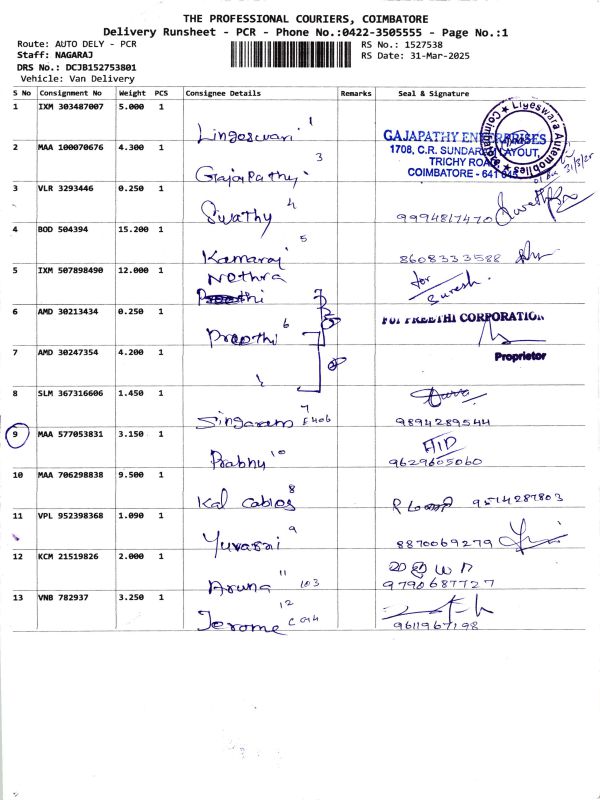 THE PROFESSIONAL COURIERS, COIMBATORE
Delivery Runsheet - PCR - Phone No.:0422-3505555 - Page No.:1
Route: AUTO DELY - PCR
RS No.: 1527538
Staff: NAGARAJ
RS Date: 31-Mar-2025
DRS No.: DCJB152753801
Vehicle: Van Delivery
S No Consignment No Weight PCS Consignee Details Remarks Seal & Signature
1 IXM 303487007 5.000 1
Lingeswari 1
Liyeswara Automobiles
Coimbatore
GAJAPATHY ENTERPRISES
1708, C.R. SUNDARAM LAYOUT,
TRICHY ROAD
COIMBATORE - 641 045
2 MAA 100070676 4.300 1
Gajapathy 3
31/3/25
3 VLR 3293446 0.250 1
Swathy 4 9994817470
4 BOD 504394 15.200 1
Kamaraj 5 8608333588
5 IXM 507898490 12.000 1
Nethra
for
Suresh.
6 AMD 30213434 0.250 1
Preethi 6
For PREETHI CORPORATION
Proprietor
7 AMD 30247354 4.200 1
8 SLM 367316606 1.450 1
Singaram 7 F406 9894289544
9 MAA 577053831 3.150 1
Prabhu 10 9629605060
10 MAA 706298838 9.500 1
Kal Cables 8 9514287803
11 VPL 952398368 1.090 1
Yuvaraj 9 8870069279
12 KCM 21519826 2.000 1
Aruna 11 103 9790687727
13 VNB 782937 3.250 1
Jerome 12 9611967198